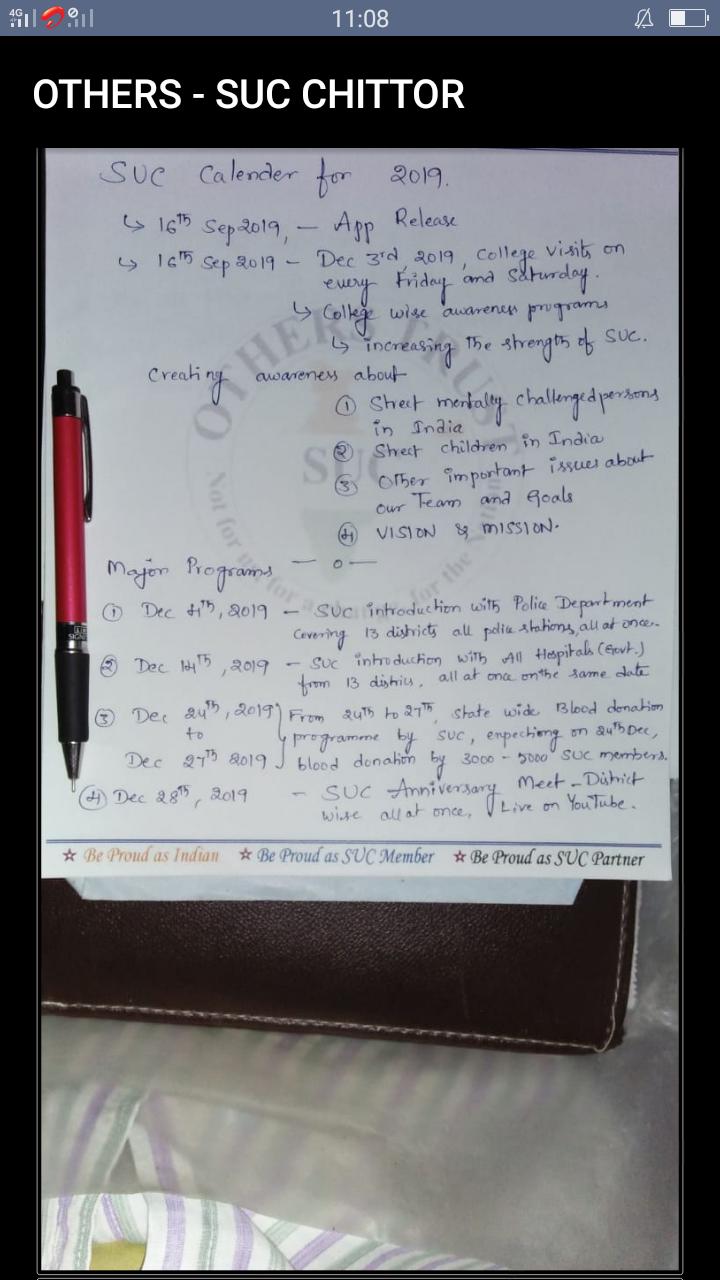 4G
11:08
OTHERS - SUC CHITTOR
SUC Calender for 2019.
↳ 16th Sep 2019, - App Release
↳ 16th Sep 2019 - Dec 3rd, 2019, College visits on
every Friday and Saturday.
↳ College wise awareness programs
↳ increasing the strength of SUC.
Creating awareness about
① Street mentally challenged persons
in India
② Street children in India
③ Other important issues about
our Team and Goals
④ VISION & MISSION.
Major Programs — o —
① Dec 4th, 2019 - SUC introduction with Police Department
covering 13 districts all police stations, all at once.
② Dec 14th, 2019 - SUC introduction with All Hospitals (Govt.)
from 13 districs, all at once on the same date
③ Dec 24th, 2019 From 24th to 27th, state wide Blood donation
to programme by SUC, expectiong on 24th Dec,
Dec 27th 2019 blood donation by 3000 - 5000 SUC members.
④ Dec 28th, 2019 - SUC Anniversary Meet - District
wise all at once, Live on YouTube.
☆ Be Proud as Indian ☆ Be Proud as SUC Member ☆ Be Proud as SUC Partner
OTHERS TRUST
SUC
Not for me for the